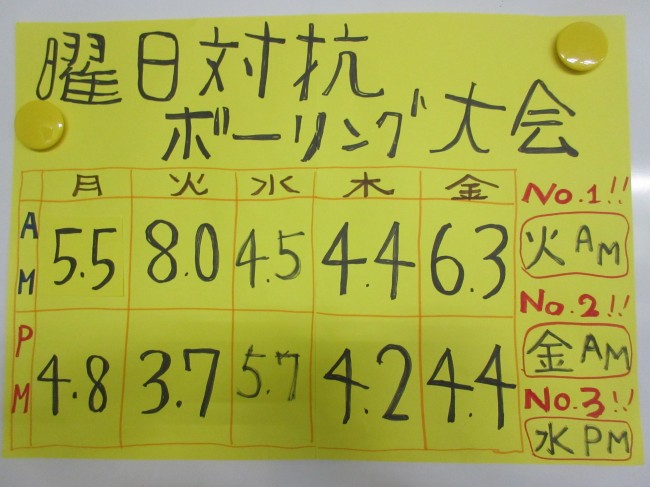 曜日対抗
ボーリング大会
月 火 水 木 金
AM 5.5 8.0 4.5 4.4 6.3
PM 4.8 3.7 5.7 4.2 4.4
No.1!!
火 AM
No.2!!
金 AM
No.3!!
水 PM